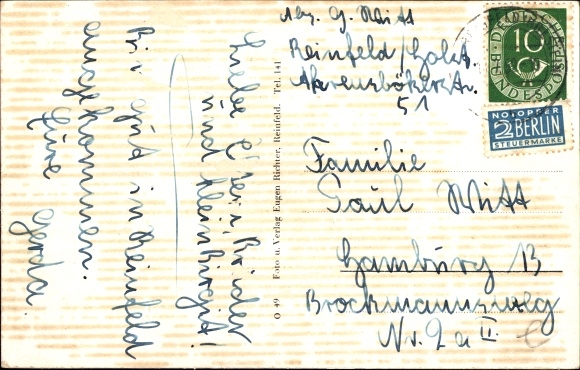 Abs. G. Witt
Reinfeld/Holst.
Ahrensbökerstr.
51
DEUTSCHE BUNDESPOST
10
NOTOPFER
2 BERLIN
STEUERMARKE
Familie
Paul Witt
Hamburg 13
Brockmannsweg
Nr. 2a II
O 49 Foto u. Verlag Eugen Richter, Reinfeld. Tel. 141
Liebe Eltern, Brüder
und klein Birgit!
Bin gut in Reinfeld
angekommen.
Eure Gerda